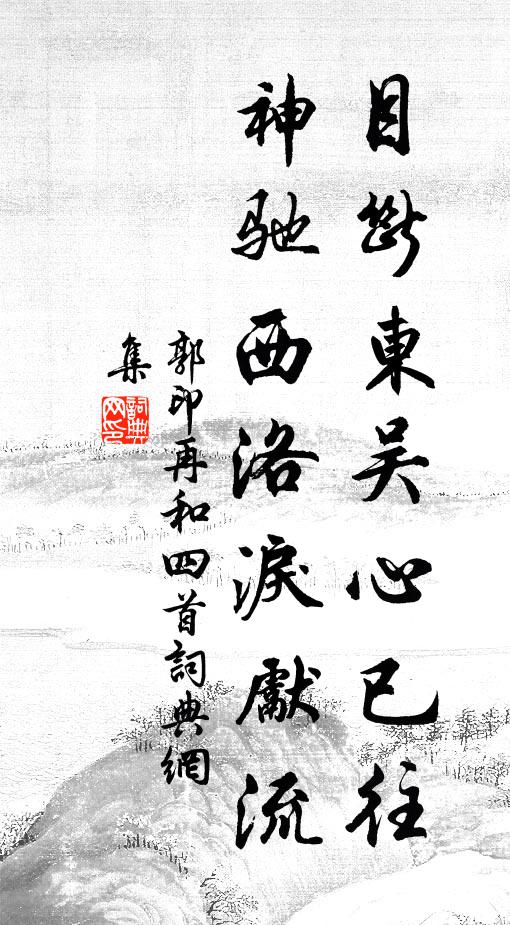 目斷東吳心已往
神馳西洛淚獻流
郭印再和四首詞典網
集
詞典网印